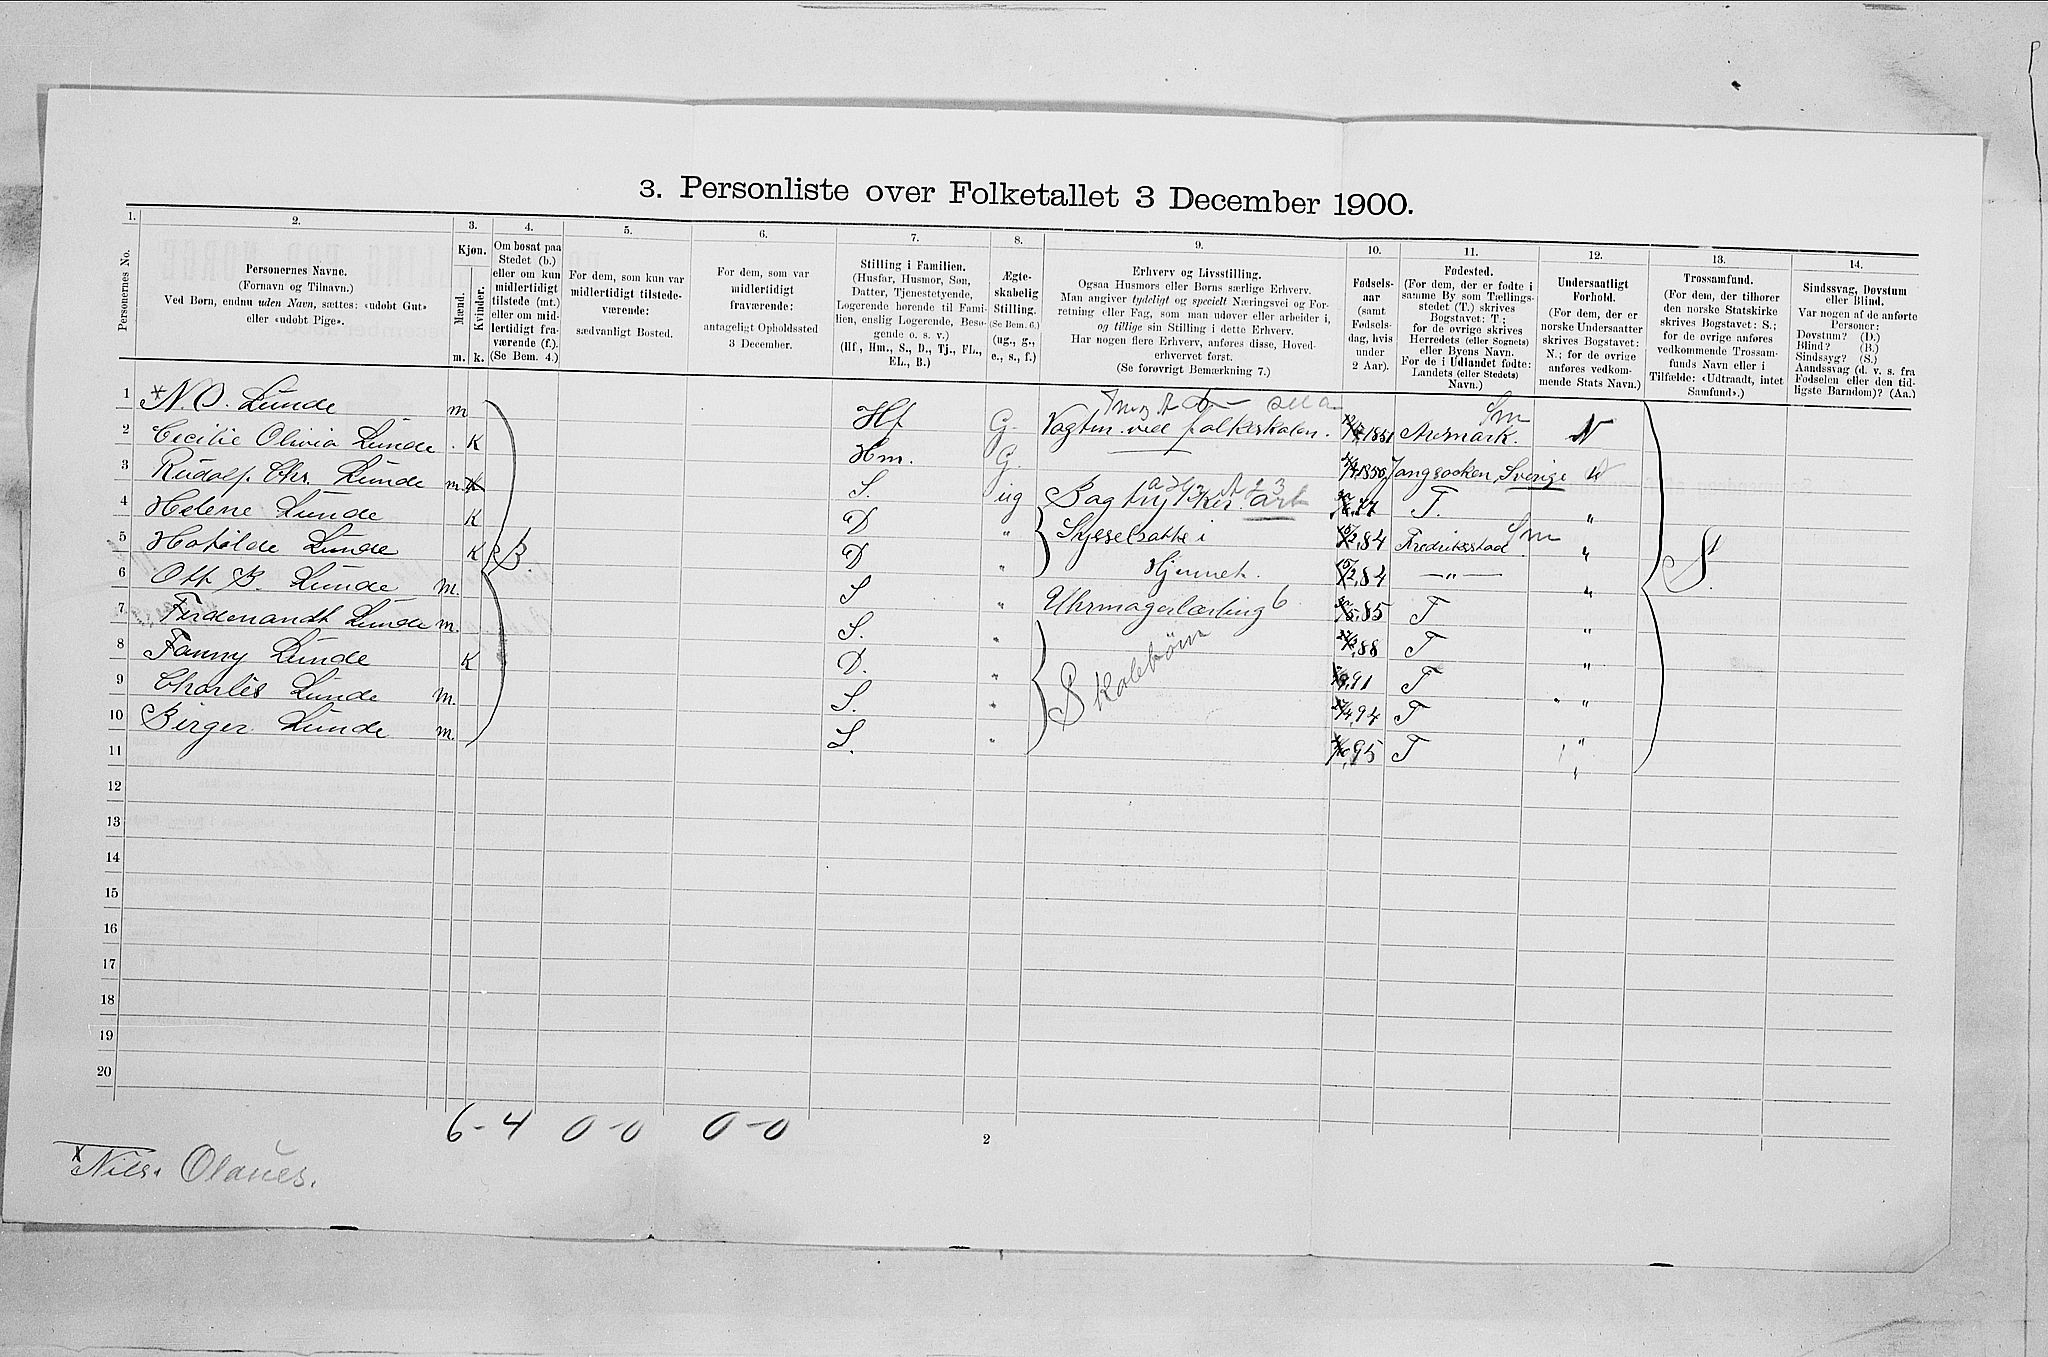 3. Personliste over Folketallet 3 December 1900.
1. 2. 3. 4. 5. 6. 7. 8. 9. 10. 11. 12. 13. 14.
Personernes No.
Personernes Navne.
(Fornavn og Tilnavn.)
Ved Børn, endnu uden Navn, sættes: «udøbt Gut»
eller «udøbt Pige».
Kjøn.
Mænd.
Kvinder.
m. k.
Om bosat paa
Stedet (b.)
eller om kun
midlertidigt
tilstede (mt.)
eller om mid-
lertidigt fra-
værende (f.).
(Se Bem. 4.)
For dem, som kun var
midlertidigt tilstede-
værende:
sædvanligt Bosted.
For dem, som var
midlertidigt
fraværende:
antageligt Opholdssted
3 December.
Stilling i Familien.
(Husfar, Husmor, Søn,
Datter, Tjenestetyende,
Logerende hørende til Fami-
lien, enslig Logerende, Besø-
gende o. s. v.)
(Hf., Hm., S., D., Tj., FL.,
EL., B.)
Ægte-
skabelig
Stilling.
(Se Bem. 6.)
(ug., g.,
e., s., f.)
Erhverv og Livsstilling.
Ogsaa Husmors eller Børns særlige Erhverv.
Man angiver tydeligt og specielt Næringsvei og For-
retning eller Fag, som man udøver eller arbeider i,
og tillige sin Stilling i dette Erhverv.
Har nogen flere Erhverv, anføres disse, Hoved-
erhvervet først.
(Se forøvrigt Bemærkning 7.)
Fødsels-
aar
(samt
Fødsels-
dag, hvis
under
2 Aar).
Fødested.
(For dem, der er fødte i
samme By som Tællings-
stedet (T.) skrives
Bogstavet: T.;
for de øvrige skrives
Herredets (eller Sognets)
eller Byens Navn.
For de i Udlandet fødte:
Landets (eller Stedets)
Navn.)
Undersaatligt
Forhold.
(For dem, der er
norske Undersaatter
skrives Bogstavet:
N.; for de øvrige
anføres vedkom-
mende Stats Navn.)
Trossamfund.
(For dem, der tilhører
den norske Statskirke
skrives Bogstavet: S.;
for de øvrige anføres
vedkommende Trossam-
funds Navn eller i
Tilfælde: «Udtraadt, intet
Samfund».)
Sindssvag, Døvstum
eller Blind.
Var nogen af de anførte
Personer:
Døvstum? (D.)
Blind? (B.)
Sindssyg? (S.)
Aandssvag (d. v. s. fra
Fødselen eller den tid-
ligste Barndom)? (Aa.)
1 N. O. Lunde m Hf G. Vagtm. ved folkeskolen. 1851 Aremark. Sm N
2 Cecilie Olivia Lunde K Hm. G. 1850 Sverige
3 Rudolf Chr. Lunde m S. ug Bogtrykker arb 77 T. "
4 Helene Lunde K D " Sysselsatte i 84 Fredriksstad Sm "
5 Hotilde Lunde K B. D " Hjemmet. 84 —"— " S.
6 Ott B. Lunde m. S " Uhrmagerlærling 6 85 T "
7 Ferdenandt Lunde m. S. " 88 T "
8 Fanny Lunde K D. " Skolebørn 91 T "
9 Charles Lunde m. S. " 94 T "
10 Birger Lunde m. S. " 95 T "
11
12
13
14
15
16
17
18
19
20
6-4 0-0 0-0
2
x Nils. Olaues.